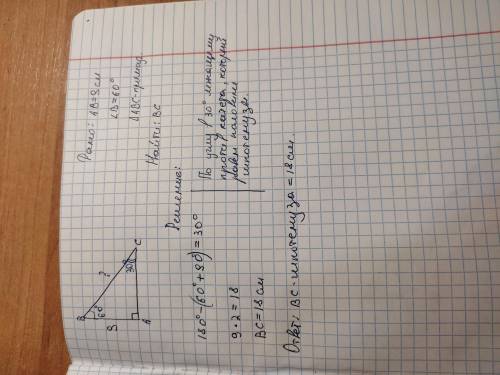 Дано: AB=9см
∠B=60°
△ABC-прямоуг.
Найти: BC
B
60°
?
9
30°
A
C
Решение:
180°-(60°+90)=30°
9·2=18
BC=18см
По углу в 30° лежащему
против катета, который
равен половине
гипотенузы.
Ответ: BC-гипотенуза=18см.